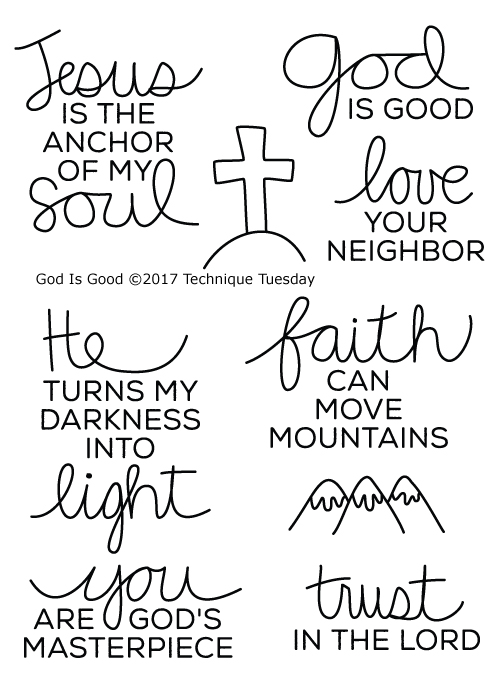 Jesus
IS THE
ANCHOR
OF MY
soul
God
IS GOOD
love
YOUR
NEIGHBOR
God Is Good ©2017 Technique Tuesday
He
TURNS MY
DARKNESS
INTO
light
faith
CAN
MOVE
MOUNTAINS
you
ARE GOD'S
MASTERPIECE
trust
IN THE LORD